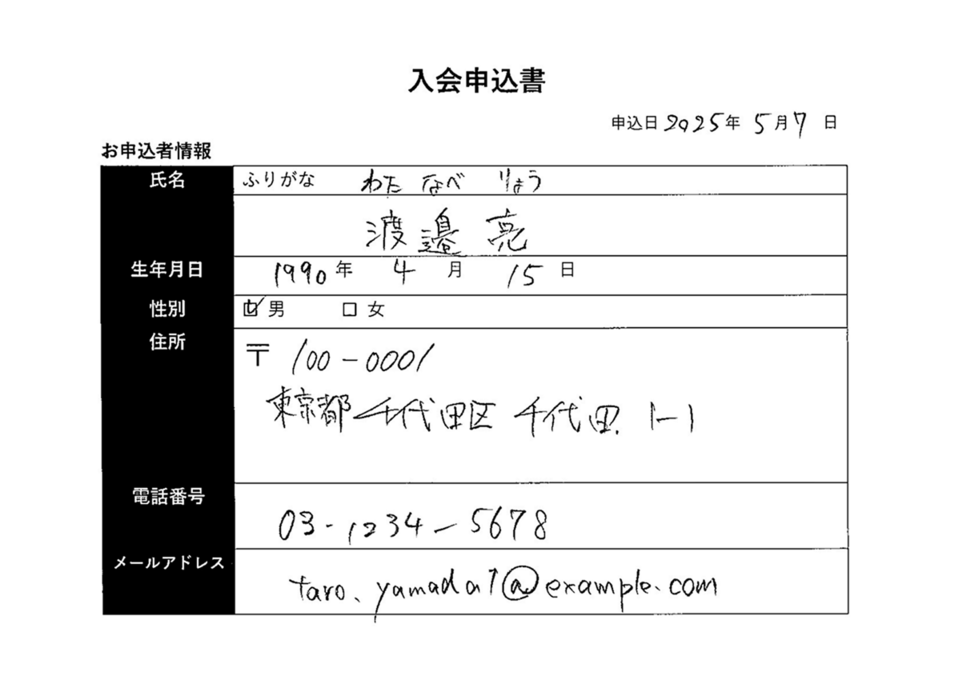 入会申込書
申込日 2025年 5月7日
お申込者情報
氏名 ふりがな わたなべ りょう
渡邉 亮
生年月日 1990年 4月 15日
性別 ☑男 □女
住所 〒100-0001
東京都千代田区千代田 1-1
電話番号 03-1234-5678
メールアドレス taro.yamada1@example.com